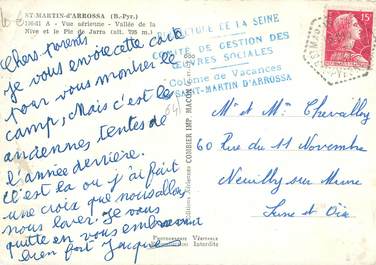 ST-MARTIN-d'ARROSSA (B.-Pyr.)
Vue aérienne - Vallée de la
Nive et le Pic de Jarra (alt. 795 m.)
Chers parents
je vous envoie cette carte
pour vous montrer le
camp, Mais c'est les
anciennes tentes de
l'année dernière.
C'est la ou j'ai fait
une croix que nous allons
nous laver. Je vous
quitte en vous embrassant
bien fort Jacques
PREFECTURE DE LA SEINE
COMITÉ DE GESTION DES
ŒUVRES SOCIALES
Colonie de Vacances
SAINT-MARTIN D'ARROSSA
COMBIER IMP. MACON
15
Mr et Mme Chevaillay
60 Rue du 11 Novembre
Neuilly sur Marne
Seine et Oise
Interdite